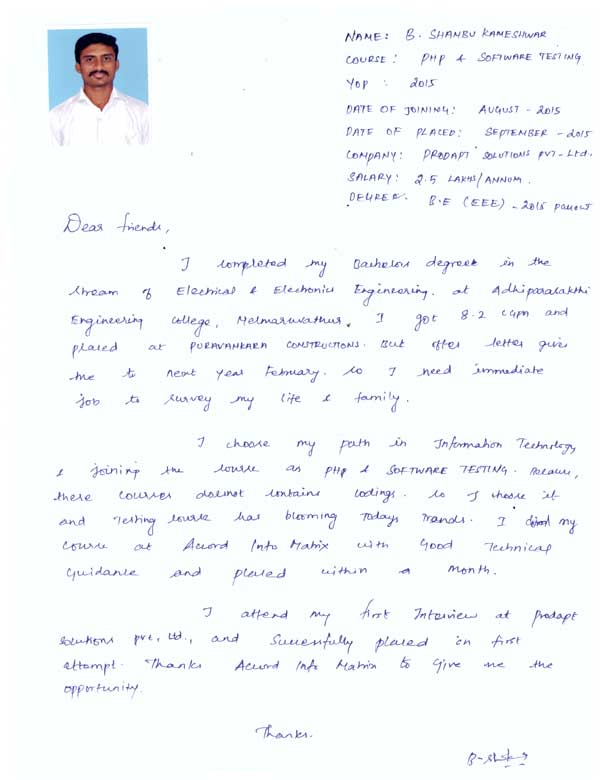 NAME: B. SHANBU KAMESHWAR
COURSE: PHP & SOFTWARE TESTING
YOP: 2015
DATE OF JOINING: AUGUST - 2015
DATE OF PLACED: SEPTEMBER - 2015
COMPANY: PRODAPT SOLUTIONS PVT-Ltd.
SALARY: 2.5 LAKHS/ANNUM.
DEGREE: B.E (EEE) - 2015 PASSOUT
Dear friends,
I completed my Bachelors degree in the
stream of Electrical & Electronics Engineering. at Adhiparasakthi
Engineering College, Melmaruvathur. I got 8.2 CGPA and
placed at PURAVANKARA CONSTRUCTIONS. But offer letter gives
me to next year February. so I need immediate
job to survey my life & family.
I choose my path in Information Technology
& joining the course as PHP & SOFTWARE TESTING. Because,
these courses doesnot contains codings. so I choose it
and Testing course has blooming Todays Trands. I my
course at Accord Info Matrix with Good Technical
Guidance and placed within a month.
I attend my first Interview at Prodapt
Solutions pvt. Ltd., and Sucessfully placed in first
attempt. Thanks Accord Info Matrix to Give me the
opportunity.
Thanks.